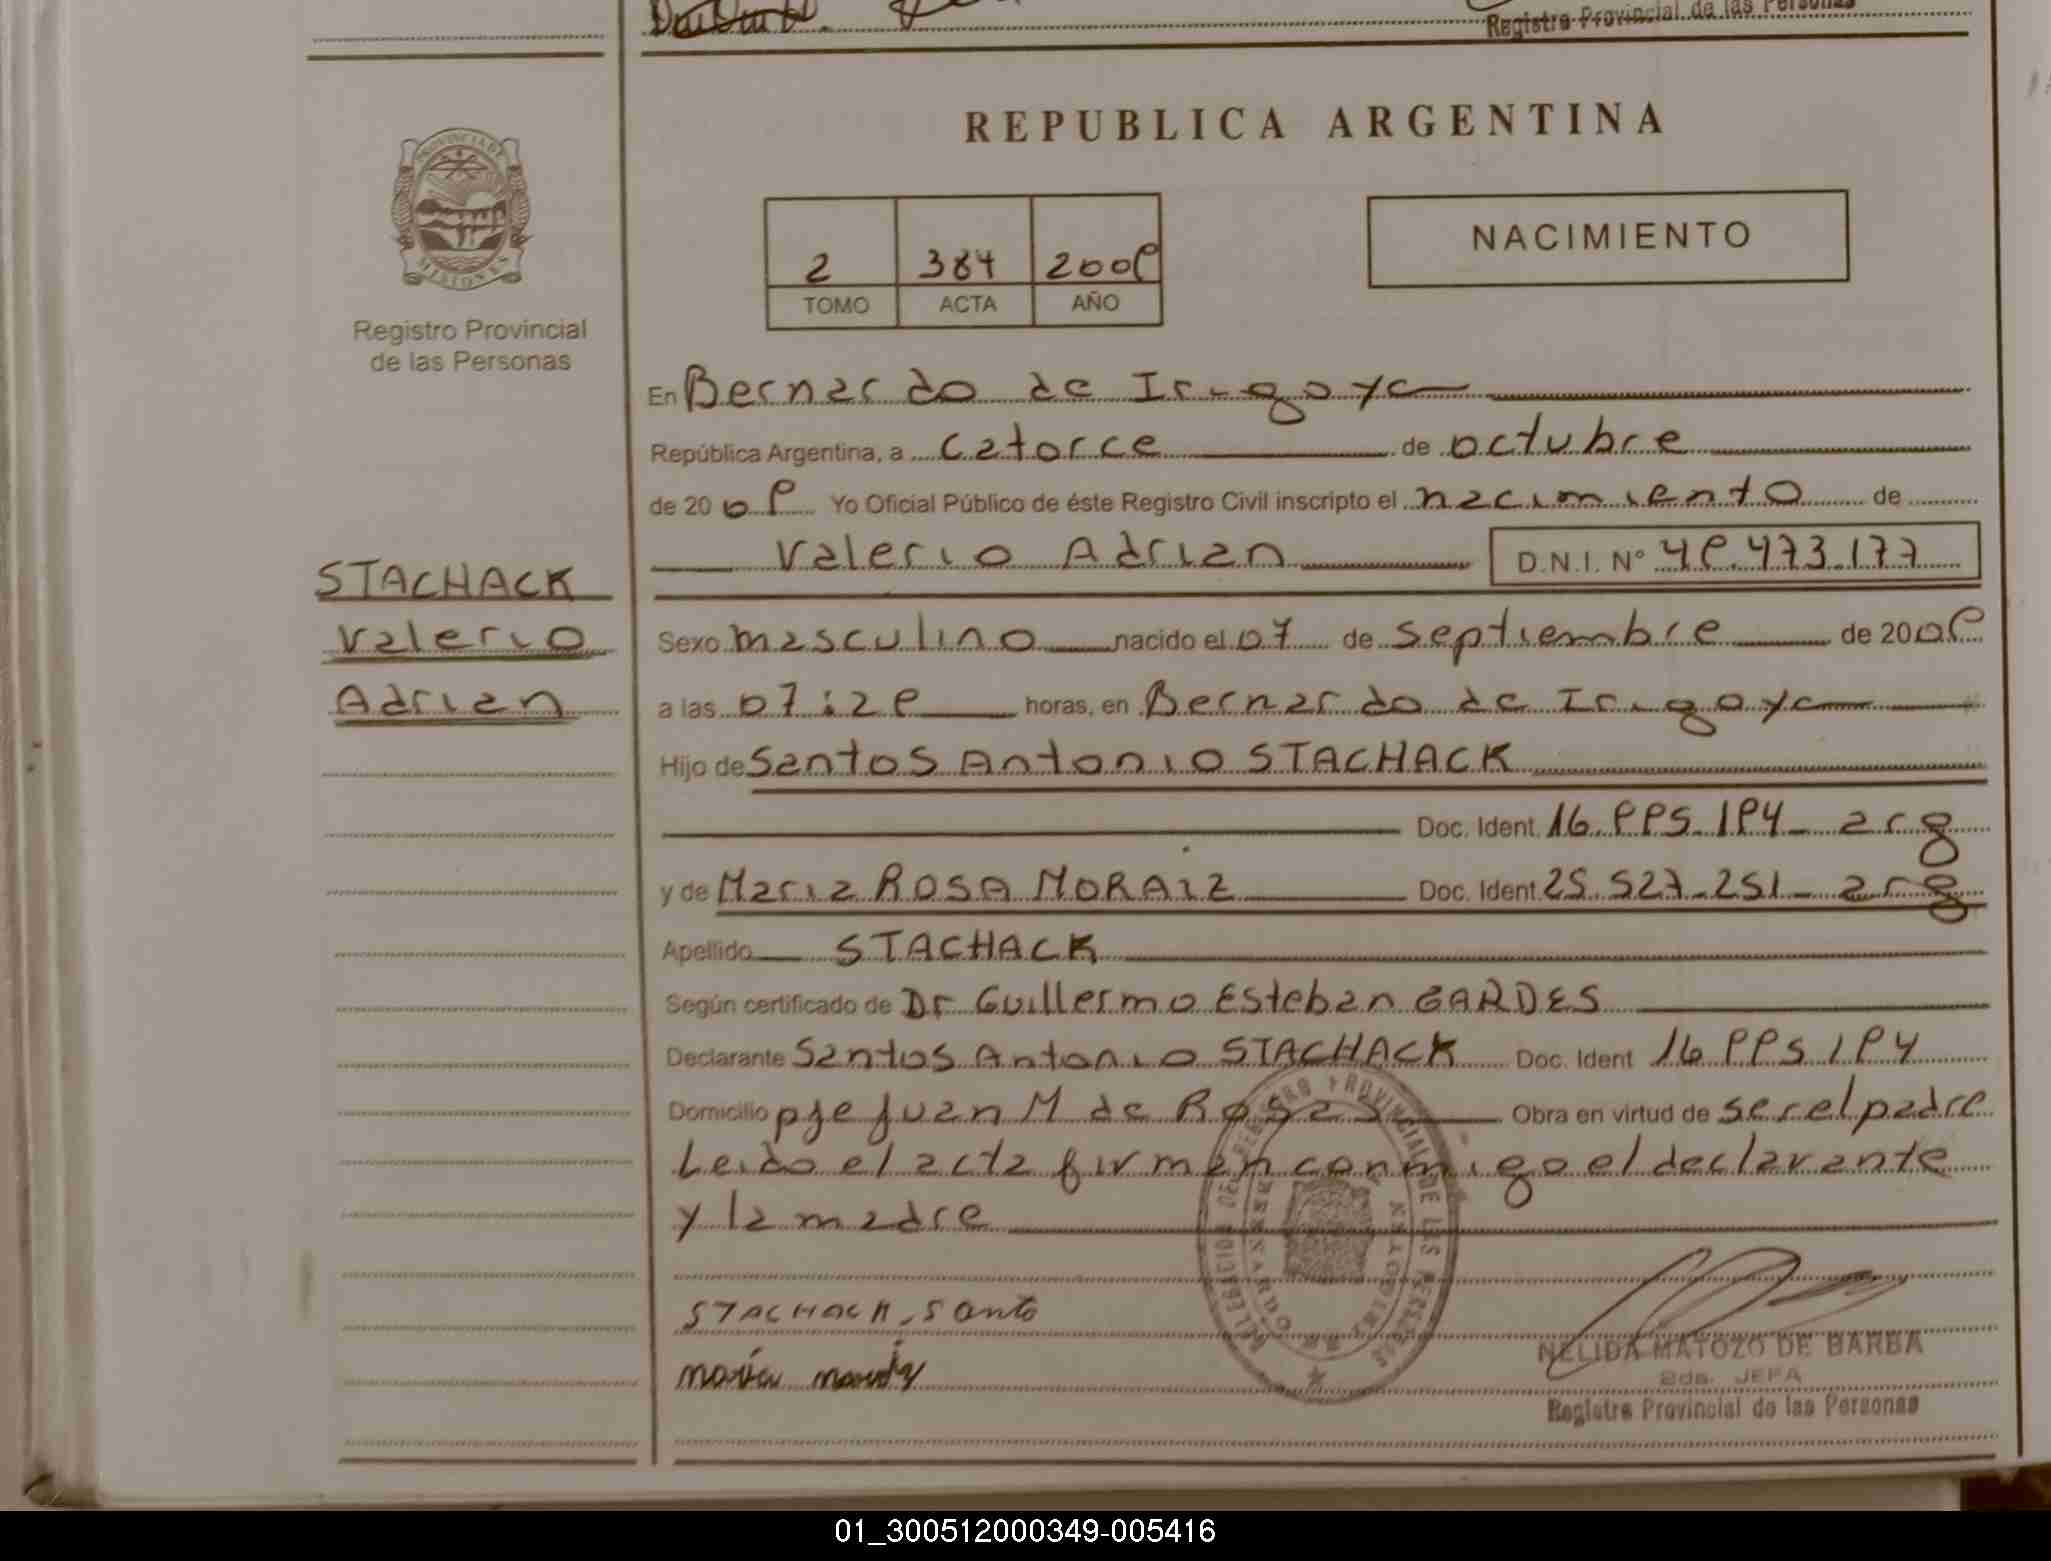 Registro Provincial de las Personas
REPUBLICA ARGENTINA
PROVINCIA DE
MISIONES
Registro Provincial
de las Personas
2 384 2009
TOMO ACTA AÑO
NACIMIENTO
En Bernardo de Irigoyen
República Argentina, a catorce de octubre
de 2009 Yo Oficial Público de éste Registro Civil inscripto el nacimiento de
Valerio Adrian D.N.I. N° 49.473.177
STACHACK
Valerio
Adrian
Sexo masculino nacido el 07 de septiembre de 2009
a las 07:29 horas, en Bernardo de Irigoyen
Hijo de Santos Antonio STACHACK
Doc. Ident. 16.995.194 - arg
y de Maria ROSA MORAIZ Doc. Ident. 25.527.251 - arg
Apellido STACHACK
Según certificado de Dr Guillermo Esteban GARDES
Declarante Santos Antonio STACHACK Doc. Ident 16 995 194
Domicilio pje Juan M de Rosas Obra en virtud de ser el padre
Leido el acta firman conmigo el declarante
y la madre
STACHACK, Santo
maria
NELIDA MATOZO DE BARBA
2da. JEFA
Registro Provincial de las Personas
01_300512000349-005416